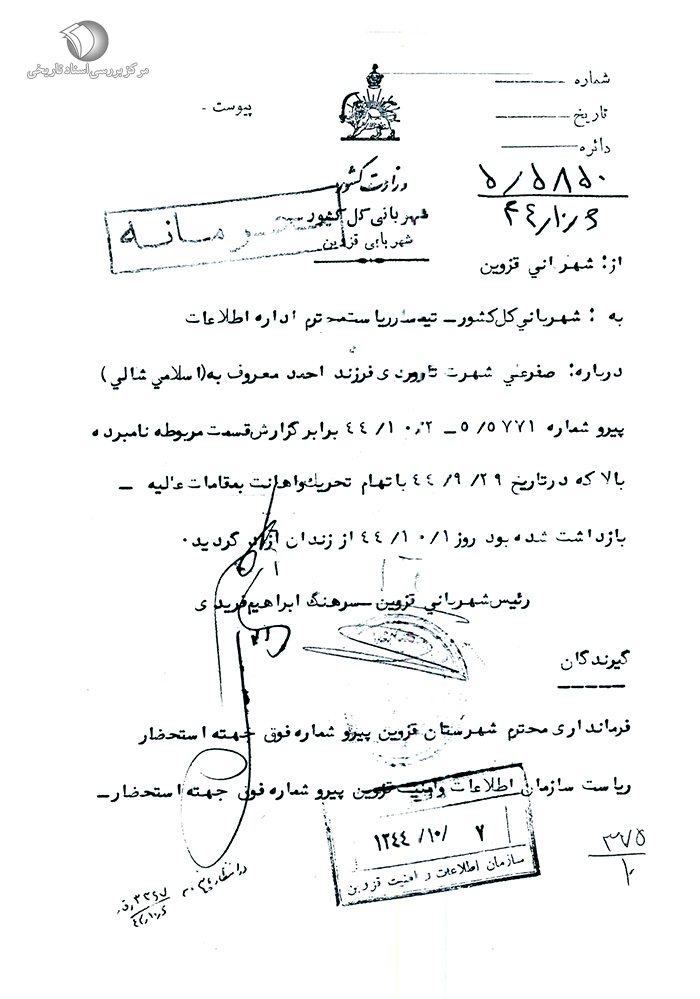 مرکز بررسی اسناد تاریخی
شماره
تاریخ
دائره
پیوست -
وزارت کشور
شهربانی کل کشور
شهربانی قزوین
محرمانه
۵/۵۸۵۰
۴۴/۱۰/۶
از: شهربانی قزوین
به : شهربانی کل کشور - تیمسار ریاست محترم اداره اطلاعات
درباره: صفرعلی شهرت فرزند احمد معروف به (اسلامی شالی)
پیرو شماره ۵/۵۷۷۱ - ۴۴/۱۰/۲ برابر گزارش قسمت مربوطه نامبرده
بالا که در تاریخ ۴۴/۹/۲۹ باتهام تحریک واهانت بمقامات عالیه -
بازداشت شده بود روز ۴۴/۱۰/۱ از زندان آزاد گردید.
رئیس شهربانی قزوین - سرهنگ ابراهیم فریدی
گیرندگان
فرمانداری محترم شهرستان قزوین پیرو شماره فوق جهته استحضار
ریاست سازمان اطلاعات وامنیت قزوین پیرو شماره فوق جهته استحضار -
۱۳۴۴/۱۰/۷
سازمان اطلاعات و امنیت قزوین